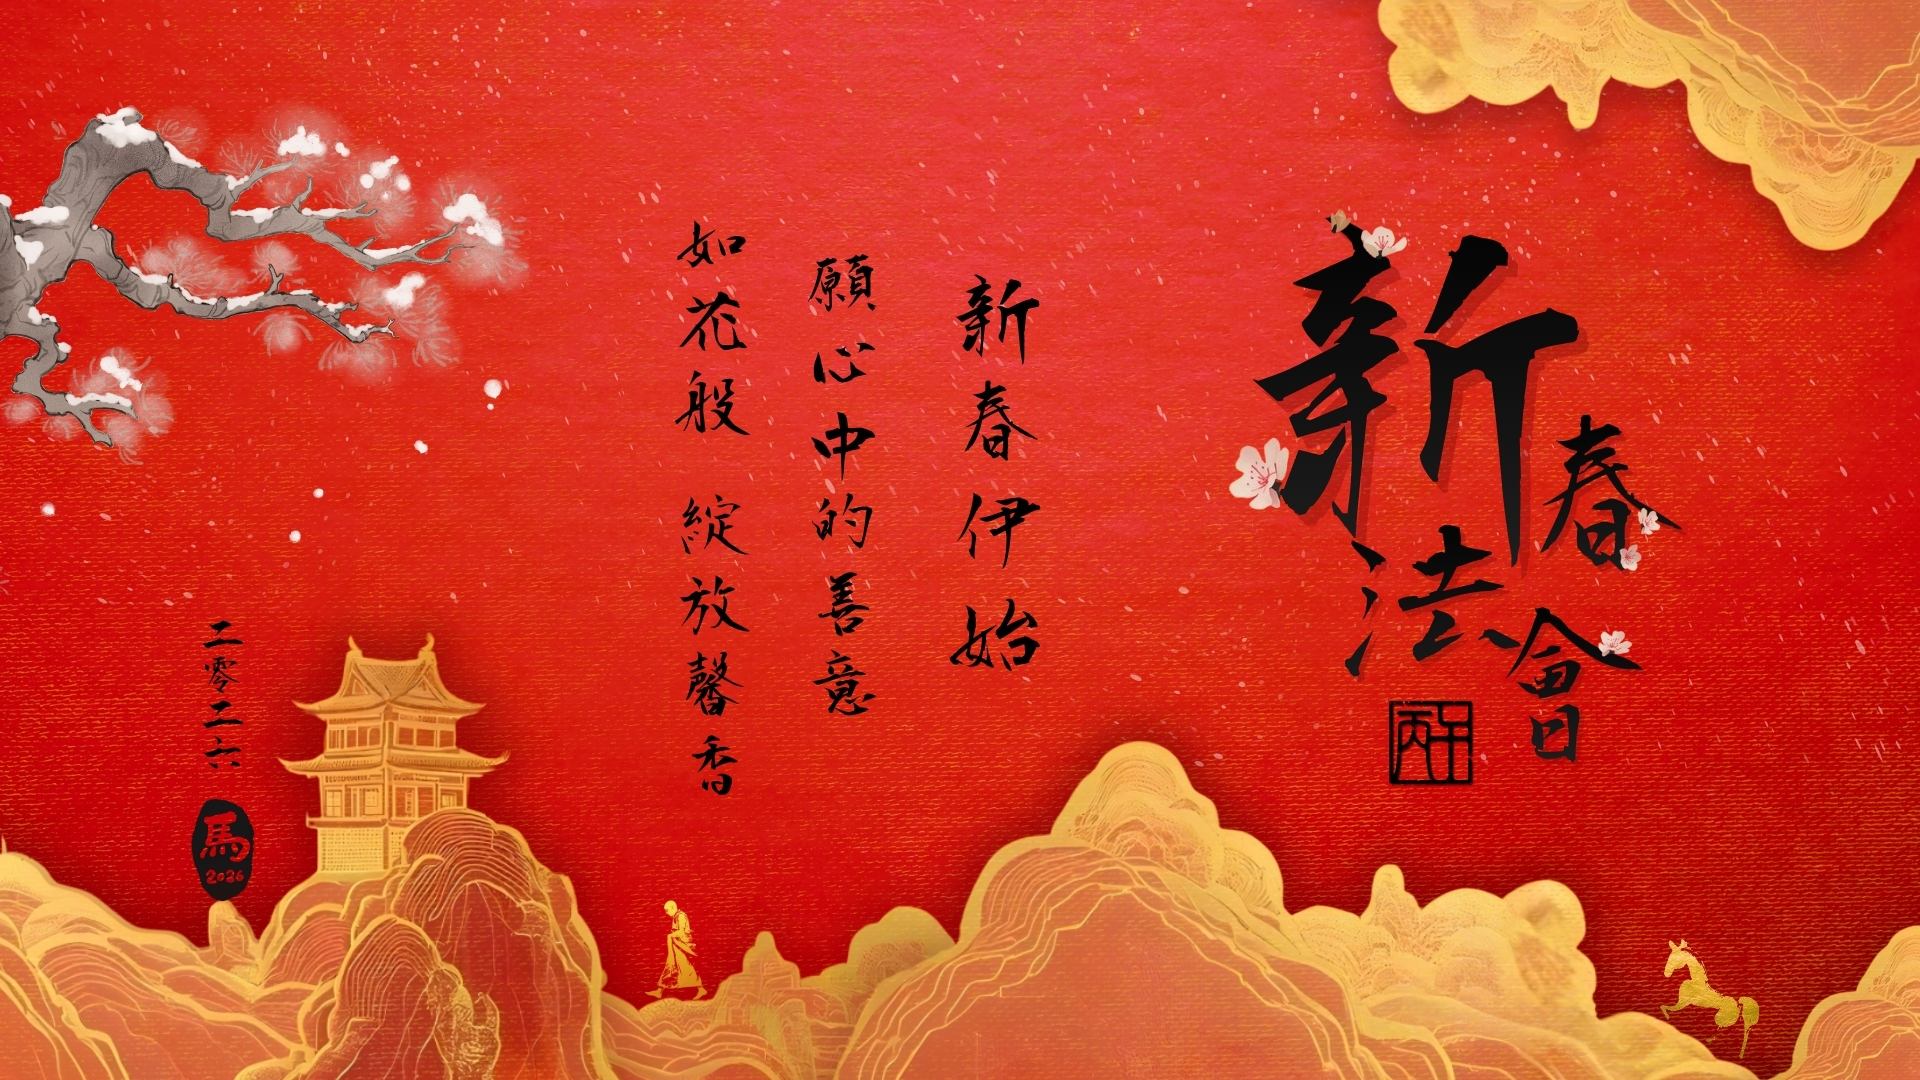 新春
法會日
丙午
新春伊始
願心中的善意
如花般 綻放馨香
二零二六
馬
2026